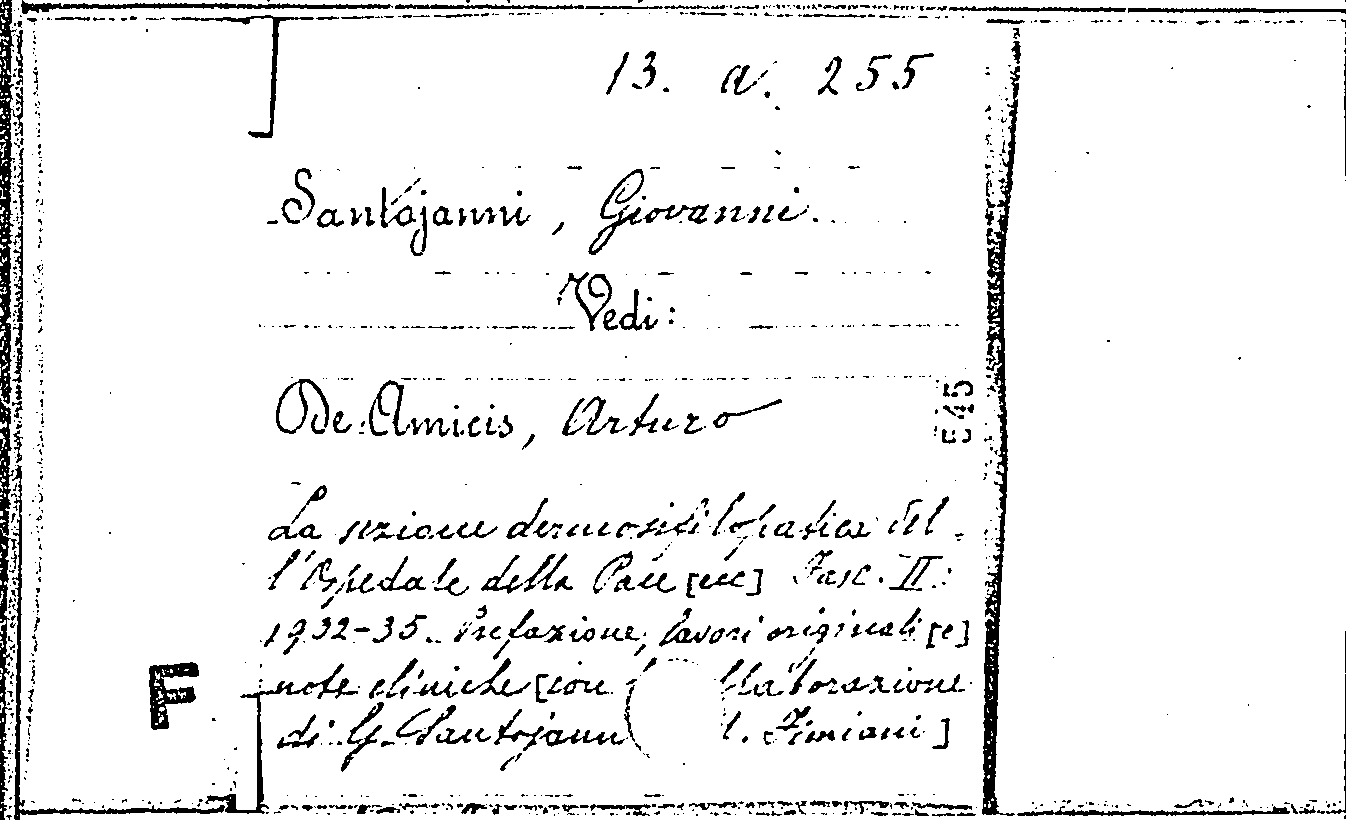 13. a. 255
Santojanni, Giovanni.
Vedi:
De Amicis, Arturo
545
La sezione dermosifilopatica del-
l'Ospedale della Pace [ecc] Fasc. II:
1932-35. Prefazione, lavori originali [e]
note cliniche [con llaborazione
F
di G. Santojann . Fimiani]